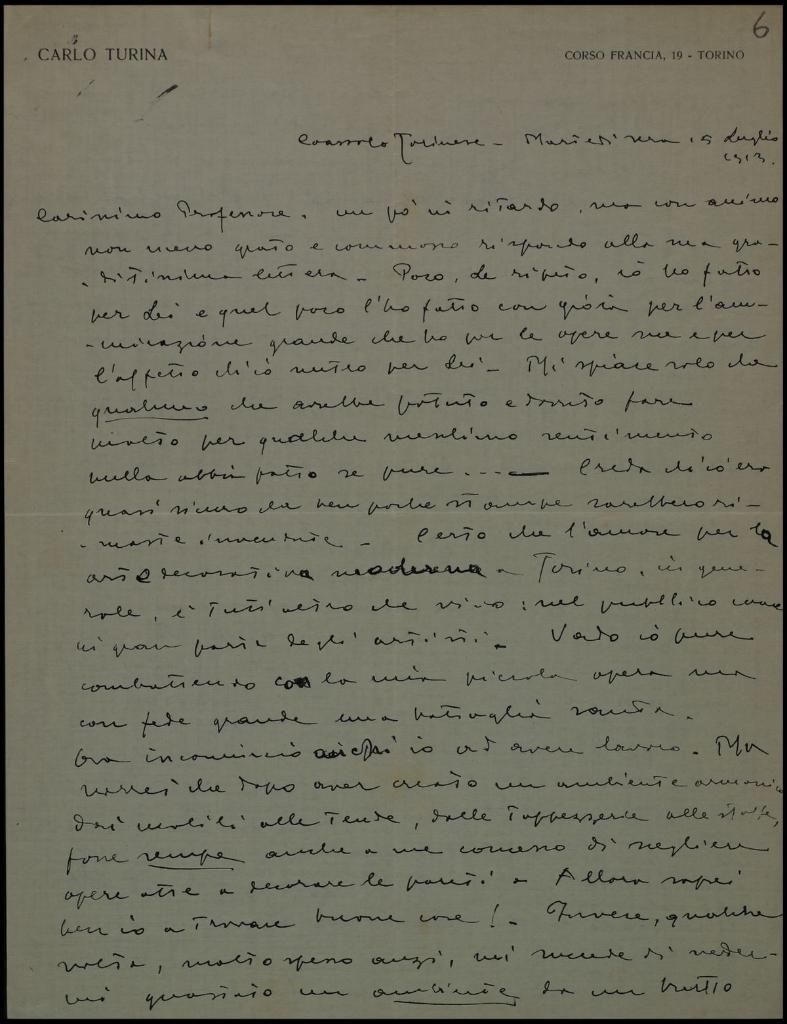 6
CARLO TURINA
CORSO FRANCIA, 19 - TORINO
Coassolo Torinese - Martedì sera 15 Luglio
1913.
Carissimo Professore, un pò in ritardo, ma con animo
non meno grato e commosso rispondo alla sua gra-
-ditissima lettera - Poco, Le ripeto, io ho fatto
per Lei e quel poco l'ho fatto con gioia per l'am-
-mirazione grande che ho per le opere sue e per
l'affetto ch'io nutro per Lei - Mi spiace solo che
qualcuno che avrebbe potuto e dovuto fare
molto per qualche meschino sentimento
nulla abbia fatto se pure ... — Creda ch'io ero
quasi sicuro che ben poche stampe sarebbero ri-
-maste invendute - Certo che l'amore per la
arte decorativa moderna a Torino, in gene-
rale, è tutt'altro che vivo: nel pubblico come
in gran parte degli artisti. Vado io pure
combattendo con la mia piccola opera ma
con fede grande una battaglia santa.
Ora incomincio anch'io ad avere lavoro. Ma
vorrei che dopo aver creato un ambiente armonico
dai mobili alle tende, dalle tappezzerie alle stoffe,
fosse sempre anche a me concesso di scegliere
opere atte a decorare le pareti - Allora saprei
ben io a trovare buone cose! - Invece, qualche
volta, molto spesso anzi, mi succede di veder-
mi guastato un ambiente da un brutto